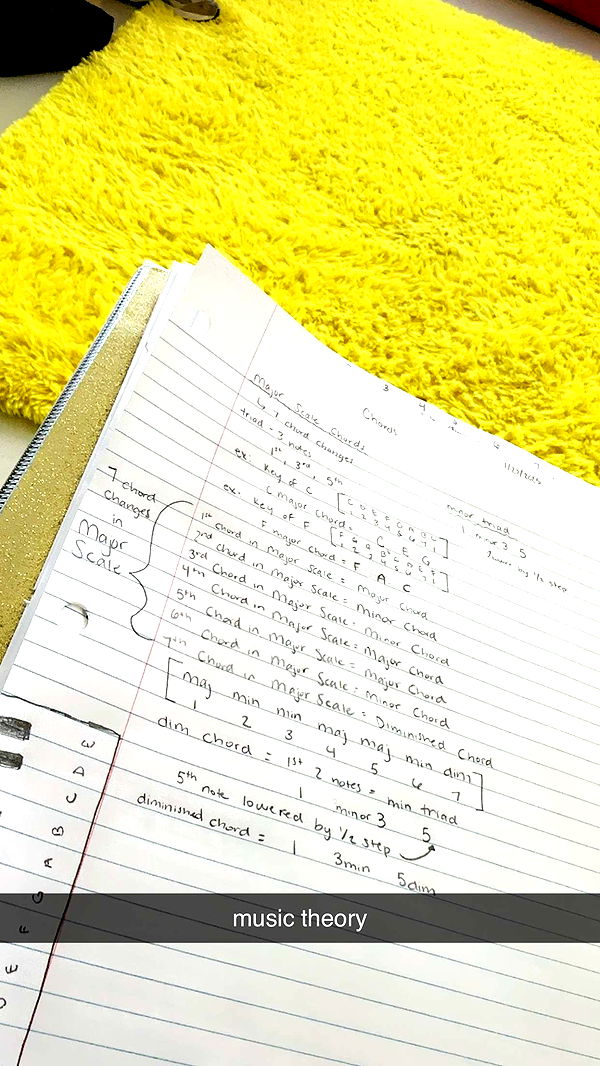 Chords
1/13/2025
Major Scale Chords
↳ 7 chord changes
triad - 3 notes
1st, 3rd, 5th
ex: Key of C [C D E F G A B C
1 2 3 4 5 6 7 1]
C Major Chord: C E G
ex: Key of F [F G A Bb C D E F
1 2 3 4 5 6 7 1]
F major chord = F A C
minor triad
1 minor 3 5
lower by 1/2 step
7 chord
changes
in
Major
Scale
1st chord in major scale = Major Chord
2nd chord in Major Scale = Minor Chord
3rd Chord in Major Scale: Minor Chord
4th Chord in Major Scale: Major Chord
5th Chord in Major Scale = Major Chord
6th Chord in Major Scale: Minor Chord
7th Chord in Major Scale = Diminished Chord
[maj min min maj maj min dim]
1 2 3 4 5 6 7
dim chord = 1st 2 notes = min triad
1 minor 3 5
5th note lowered by 1/2 step
diminished chord = 1 3min 5dim
E
A
C
B
A
G
F
E
D
music theory